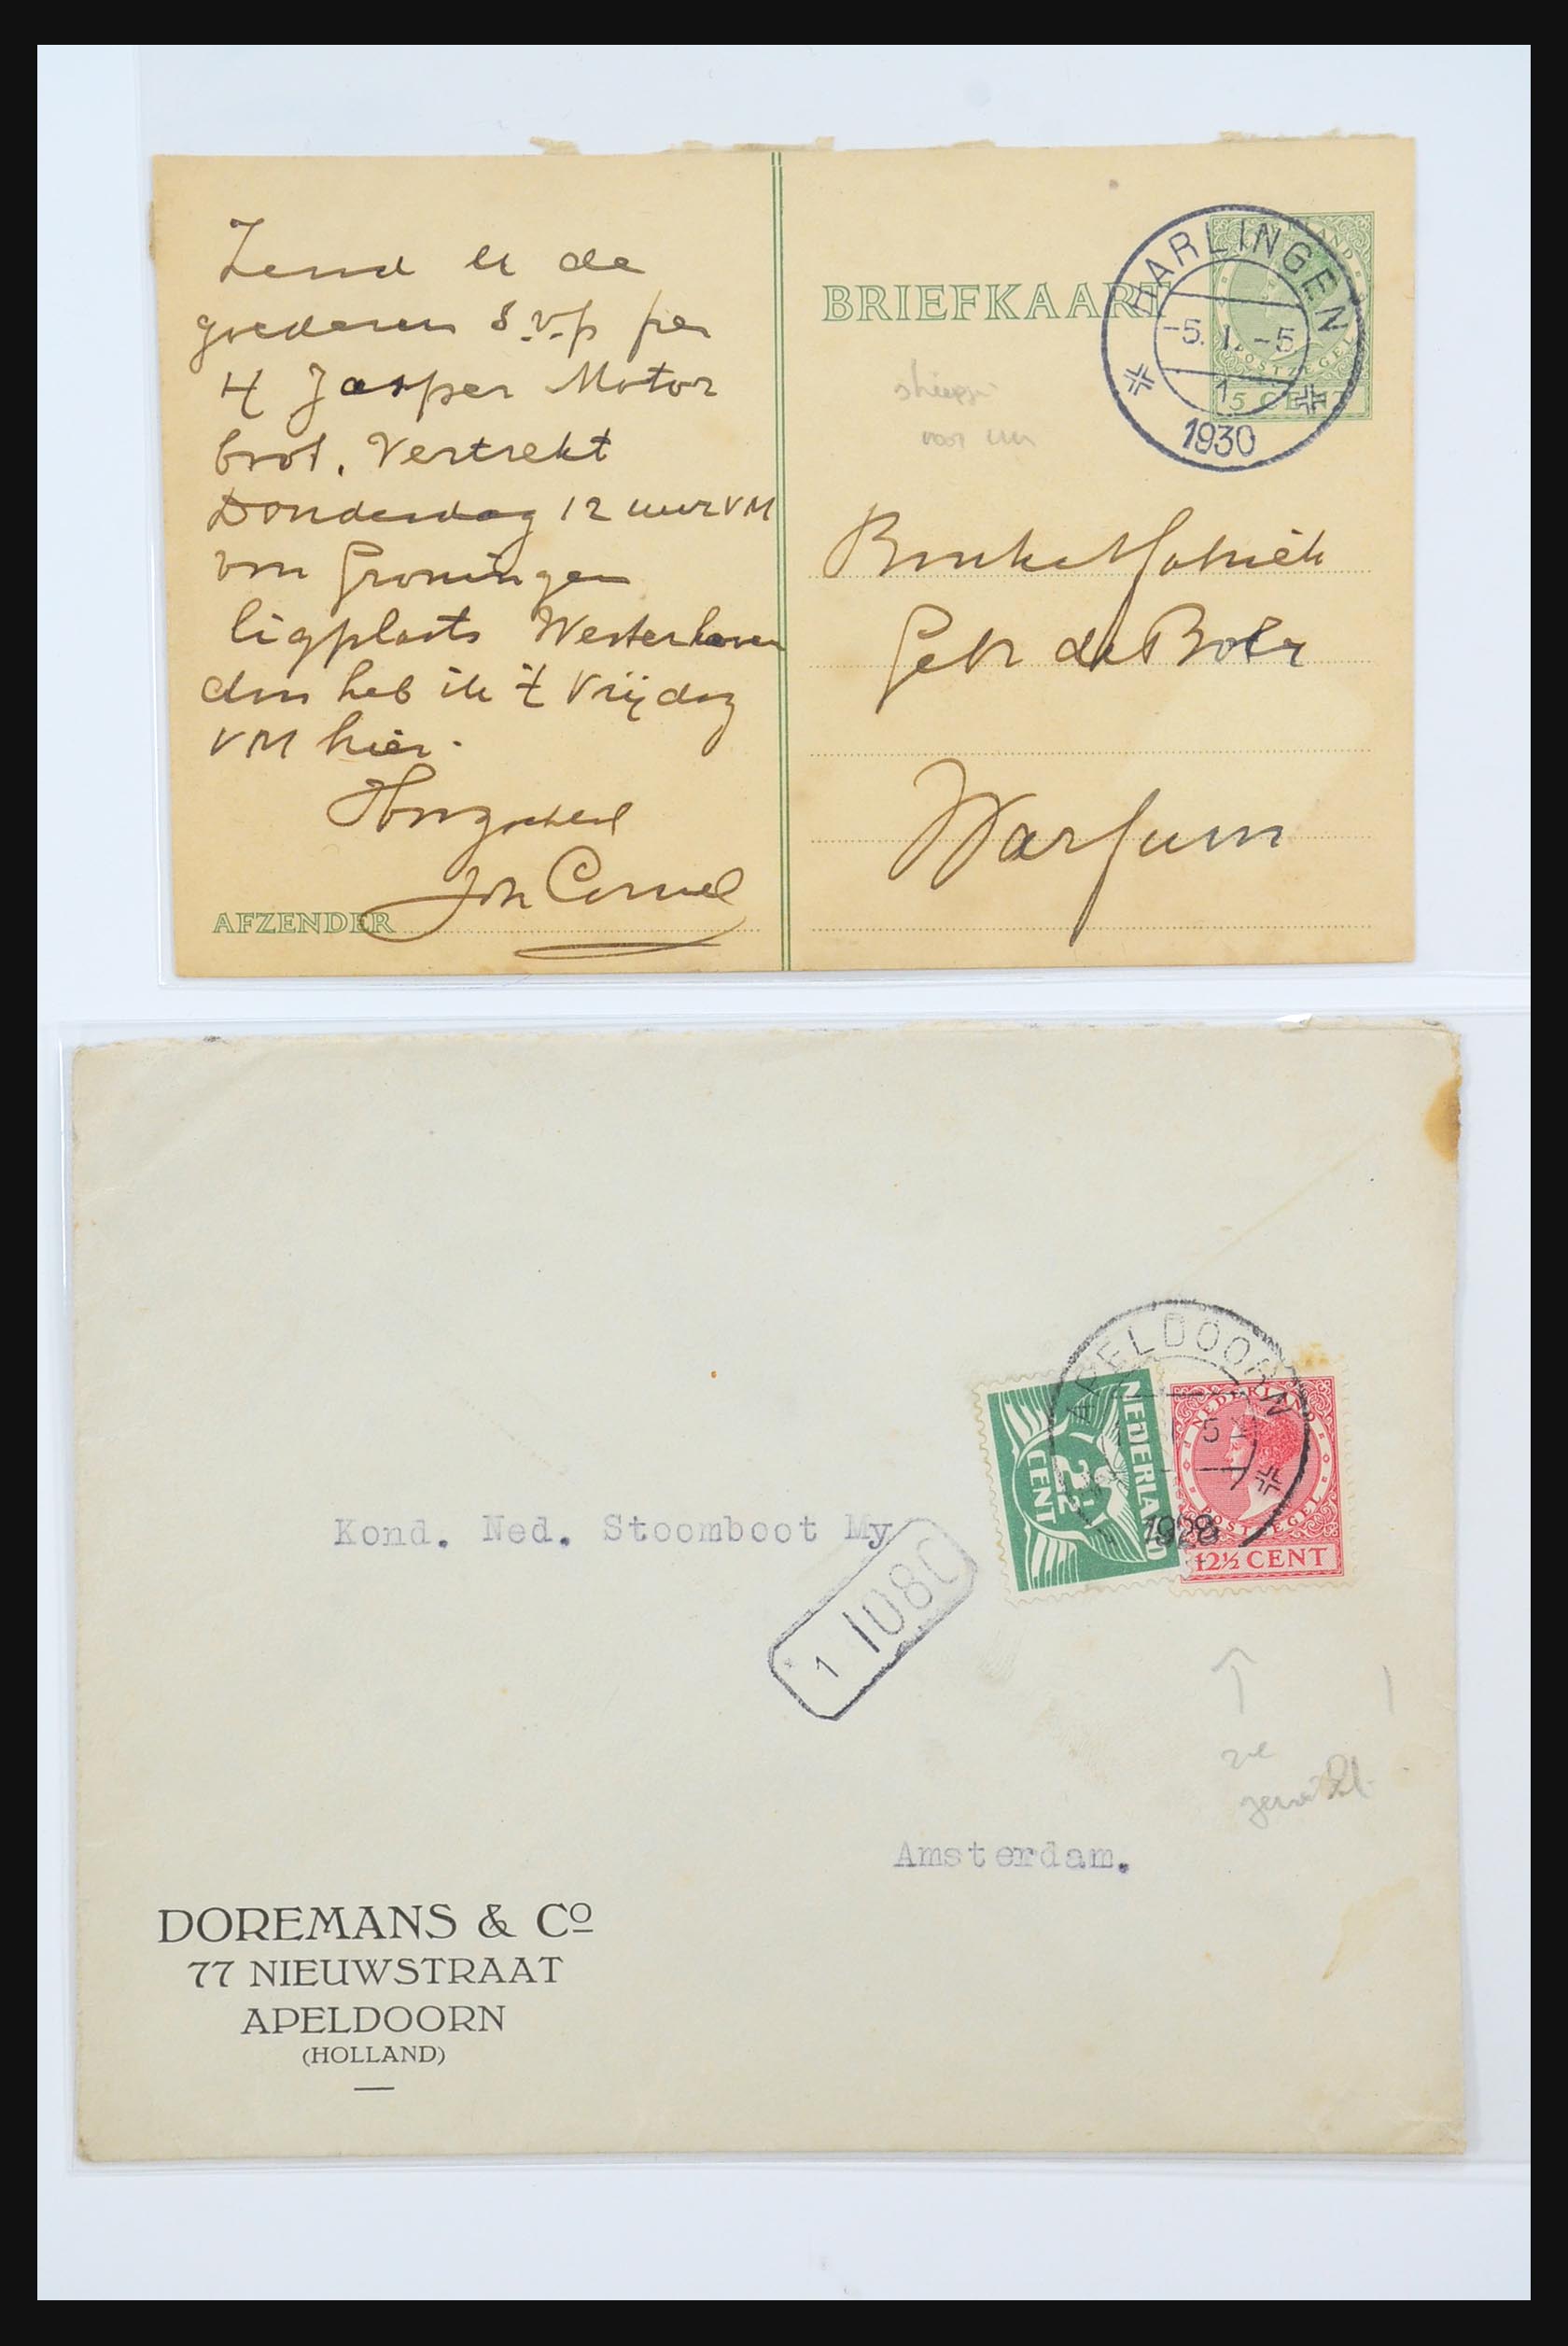 Zend u de
goederen s.v.p per
H Jasper Motor
boot. Vertrekt
Donderdag 12 uur VM
van Groningen
ligplaats Westerhaven
dan heb ik 't Vrijdag
VM hier.
Hoogachtend
Joh
AFZENDER
BRIEFKAART
NEDERLAND
POSTZEGEL
5 CENT
HARLINGEN
-5. I. -5
1
1930
voor uur
Gebr de Boer
Warfum
APELDOORN
5
1928
NEDERLAND
2½
CENT
NEDERLAND
POSTZEGEL
12½ CENT
Kond. Ned. Stoomboot My
1 1080
Amsterdam.
DOREMANS & Cº
77 NIEUWSTRAAT
APELDOORN
(HOLLAND)